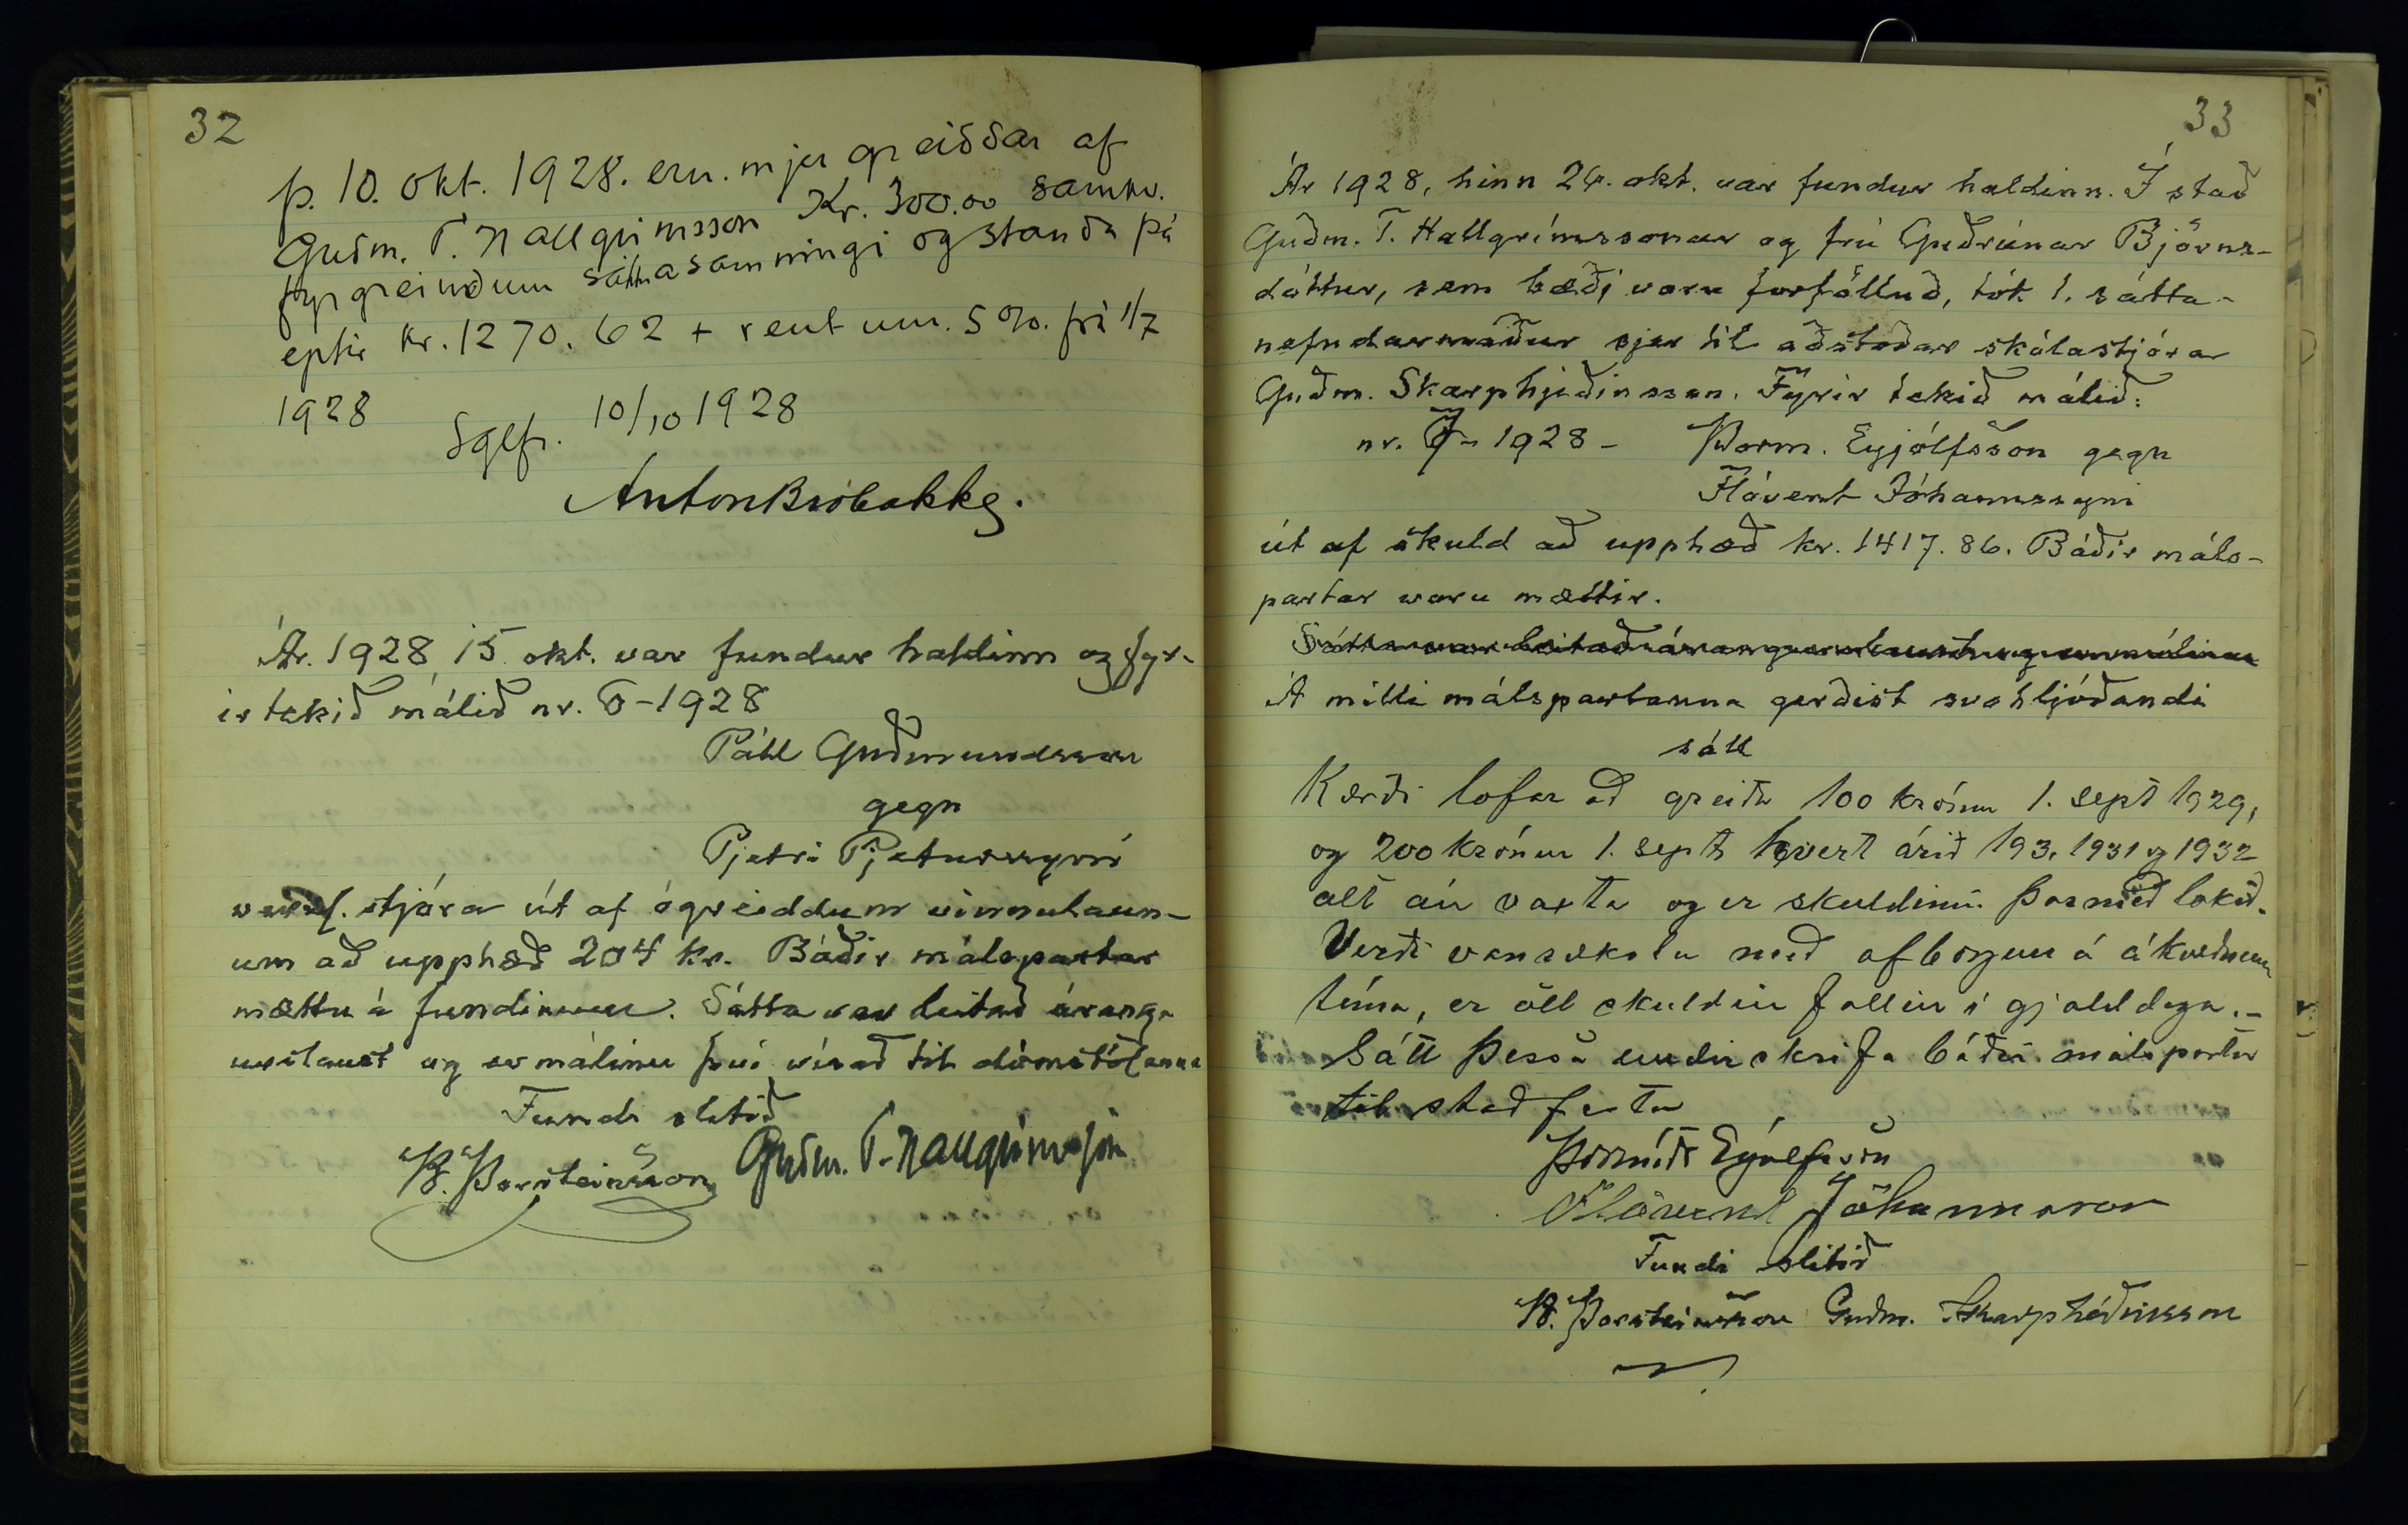 32
Þ. 10. okt. 1928. eru mjer greiddar af
Guðm. T. Hallgrimsson Kr. 300.00 samkv.
fyrgreindum sáttasamningi og standa þá
eptir kr. 1270.62 + rentum. 5%. frá 1/7
1928
Sglf. 10/10 1928
Anton Bróbakke.
Ár. 1928, 15. okt. var fundur haldinn og fyr-
ir tekið málið nr. 6-1928
Páll Guðmundsson
gegn
Pjetri Pjeturssyni
verksf. stjóra út af ógreiddum vinnulaun-
um að upphæð 204 kr. Báðir málspartar
mættu á fundinum. Sátta var leitað árang-
urslaust og er málinu því vísað til dómstólanna
Fundi slitið
B. Þorsteinsson Guðm. T. Hallgrimsson
33
Ár 1928, hinn 24. okt. var fundur haldinn. Í stað
Guðm. T. Hallgrímssonar og frú Guðrúnar Björns-
dóttur, sem bæði voru forfölluð, tók 1. sátta-
nefndarmaður sjer til aðstoðar skólastjóra
Guðm. Skarphjeðinsson. Fyrir tekið málið:
nr. 7-1928- Þorm. Eyjólfsson gegn
Flóvent Jóhannssyni
út af skuld að upphæð kr. 1417.86. Báðir máls-
partar voru mættir.
Sátta var leitað árangurslaust og er málinu
Á milli málspartanna gerðist svohljóðandi
sátt
Kærði lofar að greiða 100 krónur 1. sept 1929,
og 200 krónur 1. sept hvert árið 193. 1931 og 1932
alt án vaxta og er skuldinni þarmeð lokið.
Verði vanskil með afborgun á ákveðnum
tíma, er öll skuldin fallin í gjalddaga.-
Sátt þessa undirskrifa báðir málspartar
til staðfestu
Þormóðr Eyólfsson
Flóvent Jóhannsson
Fundi slitið
B. Þorsteinsson Guðm. Skarphéðinsson